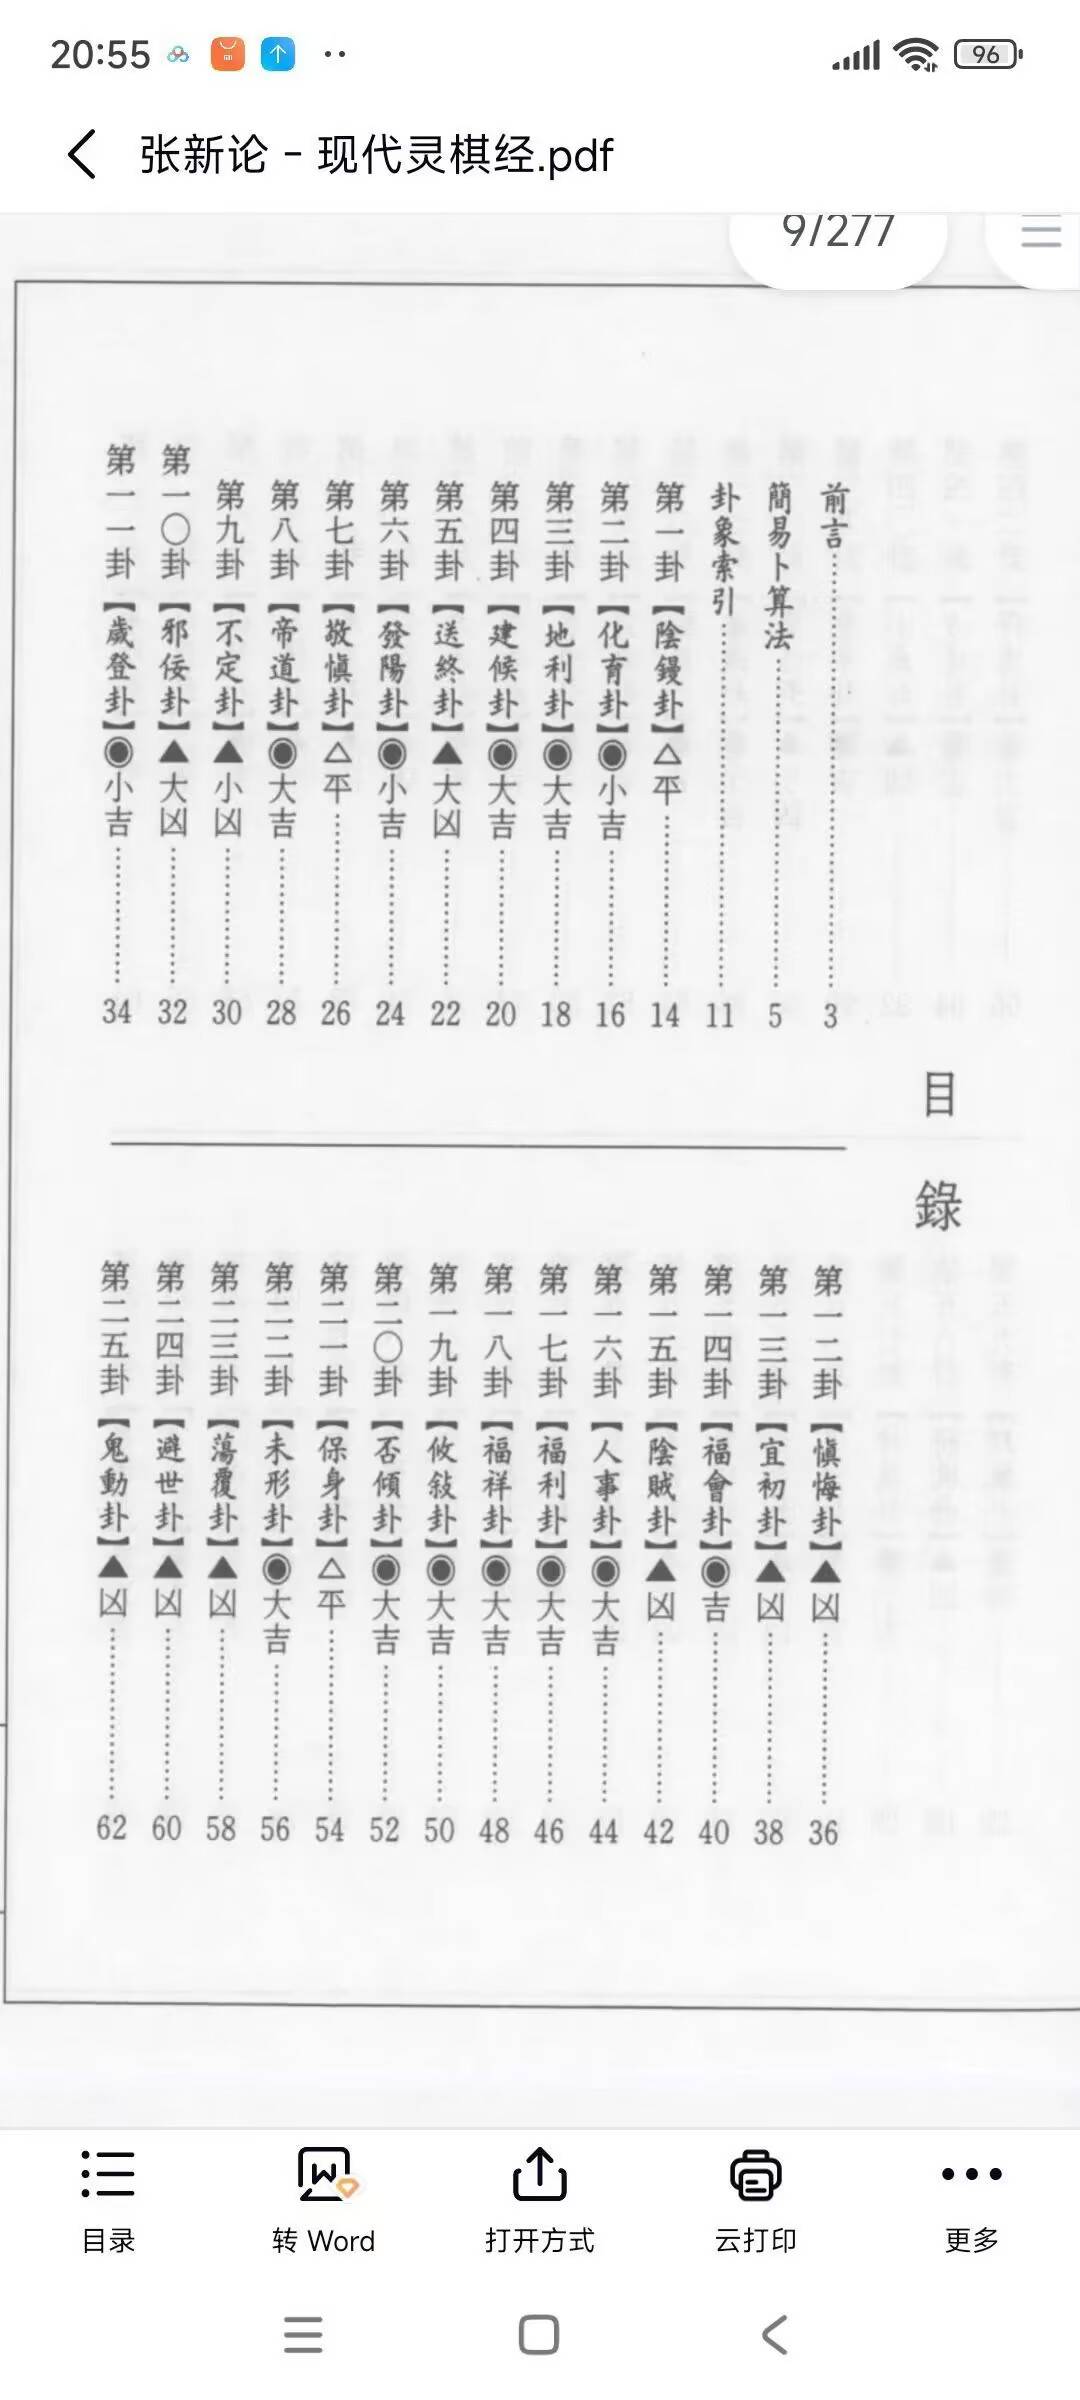 20:55
96
张新论 - 现代灵棋经.pdf
9/277
目
錄
前言 3
簡易卜算法 5
卦象索引 11
第一卦【陰鏝卦】△平 14
第二卦【化育卦】◉小吉 16
第三卦【地利卦】◉大吉 18
第四卦【建候卦】◉大吉 20
第五卦【送終卦】▲大凶 22
第六卦【發陽卦】◉小吉 24
第七卦【敬慎卦】△平 26
第八卦【帝道卦】◉大吉 28
第九卦【不定卦】▲小凶 30
第一〇卦【邪佞卦】▲大凶 32
第一一卦【歲登卦】◉小吉 34
第一二卦【慎悔卦】▲凶 36
第一三卦【宜初卦】▲凶 38
第一四卦【福會卦】◉吉 40
第一五卦【陰賊卦】▲凶 42
第一六卦【人事卦】◉大吉 44
第一七卦【福利卦】◉大吉 46
第一八卦【福祥卦】◉大吉 48
第一九卦【攸敍卦】◉大吉 50
第二〇卦【否傾卦】◉大吉 52
第二一卦【保身卦】△平 54
第二二卦【未形卦】◉大吉 56
第二三卦【蕩覆卦】▲凶 58
第二四卦【避世卦】▲凶 60
第二五卦【鬼動卦】▲凶 62
目录
转 Word
打开方式
云打印
更多